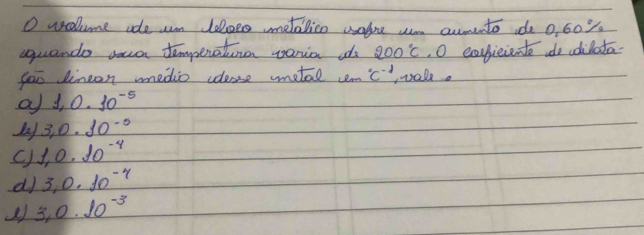 O volume de um bloco metálico sofre um aumento de 0,60%
quando sua temperatura varia de 200°C. O coeficiente de dilata-
ção linear médio desse metal em °C⁻¹, vale.
a) 1,0 . 10⁻⁵
b) 3,0 . 10⁻⁵
c) 1,0 . 10⁻⁴
d) 3,0 . 10⁻⁴
e) 3,0 . 10⁻³